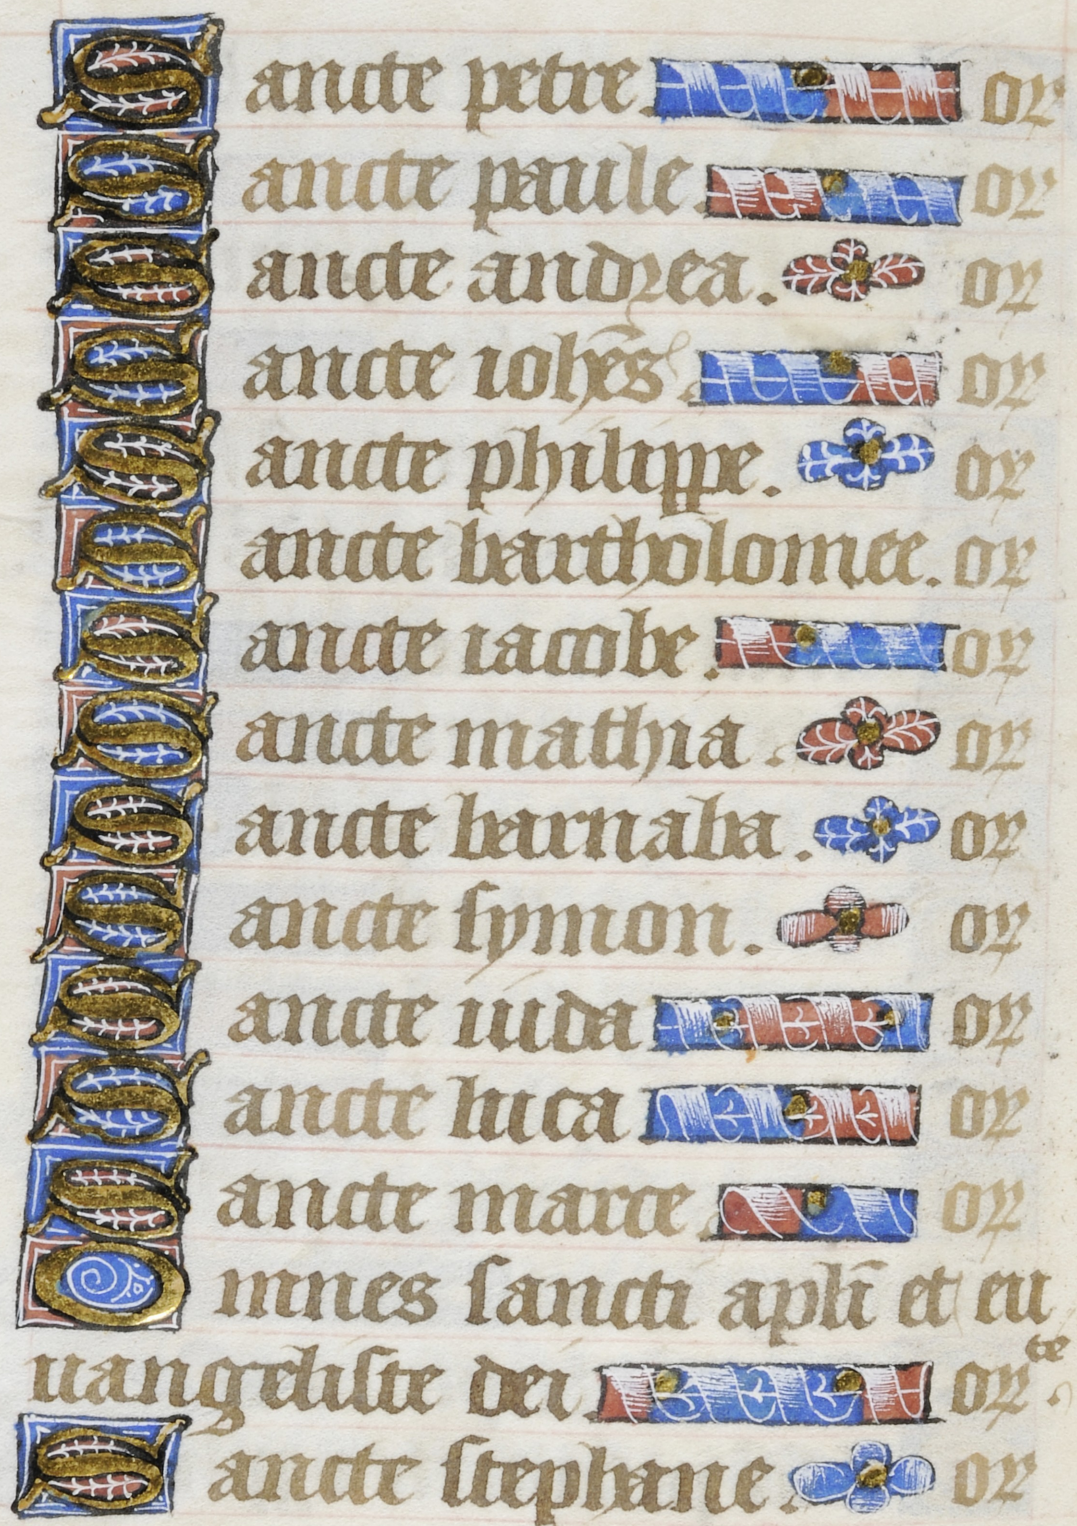 Sancte petre. or
Sancte paule. or
Sancte andrea. or
Sancte ioh̄es. or
Sancte philippe. or
Sancte bartholomee. or
Sancte iacobe. or
Sancte mathia. or
Sancte barnaba. or
Sancte symon. or
Sancte iuda or
Sancte luca or
Sancte marce. or
Omnes sancti apl̄i et eu
uangeliste dei. orte.
Sancte stephane. or